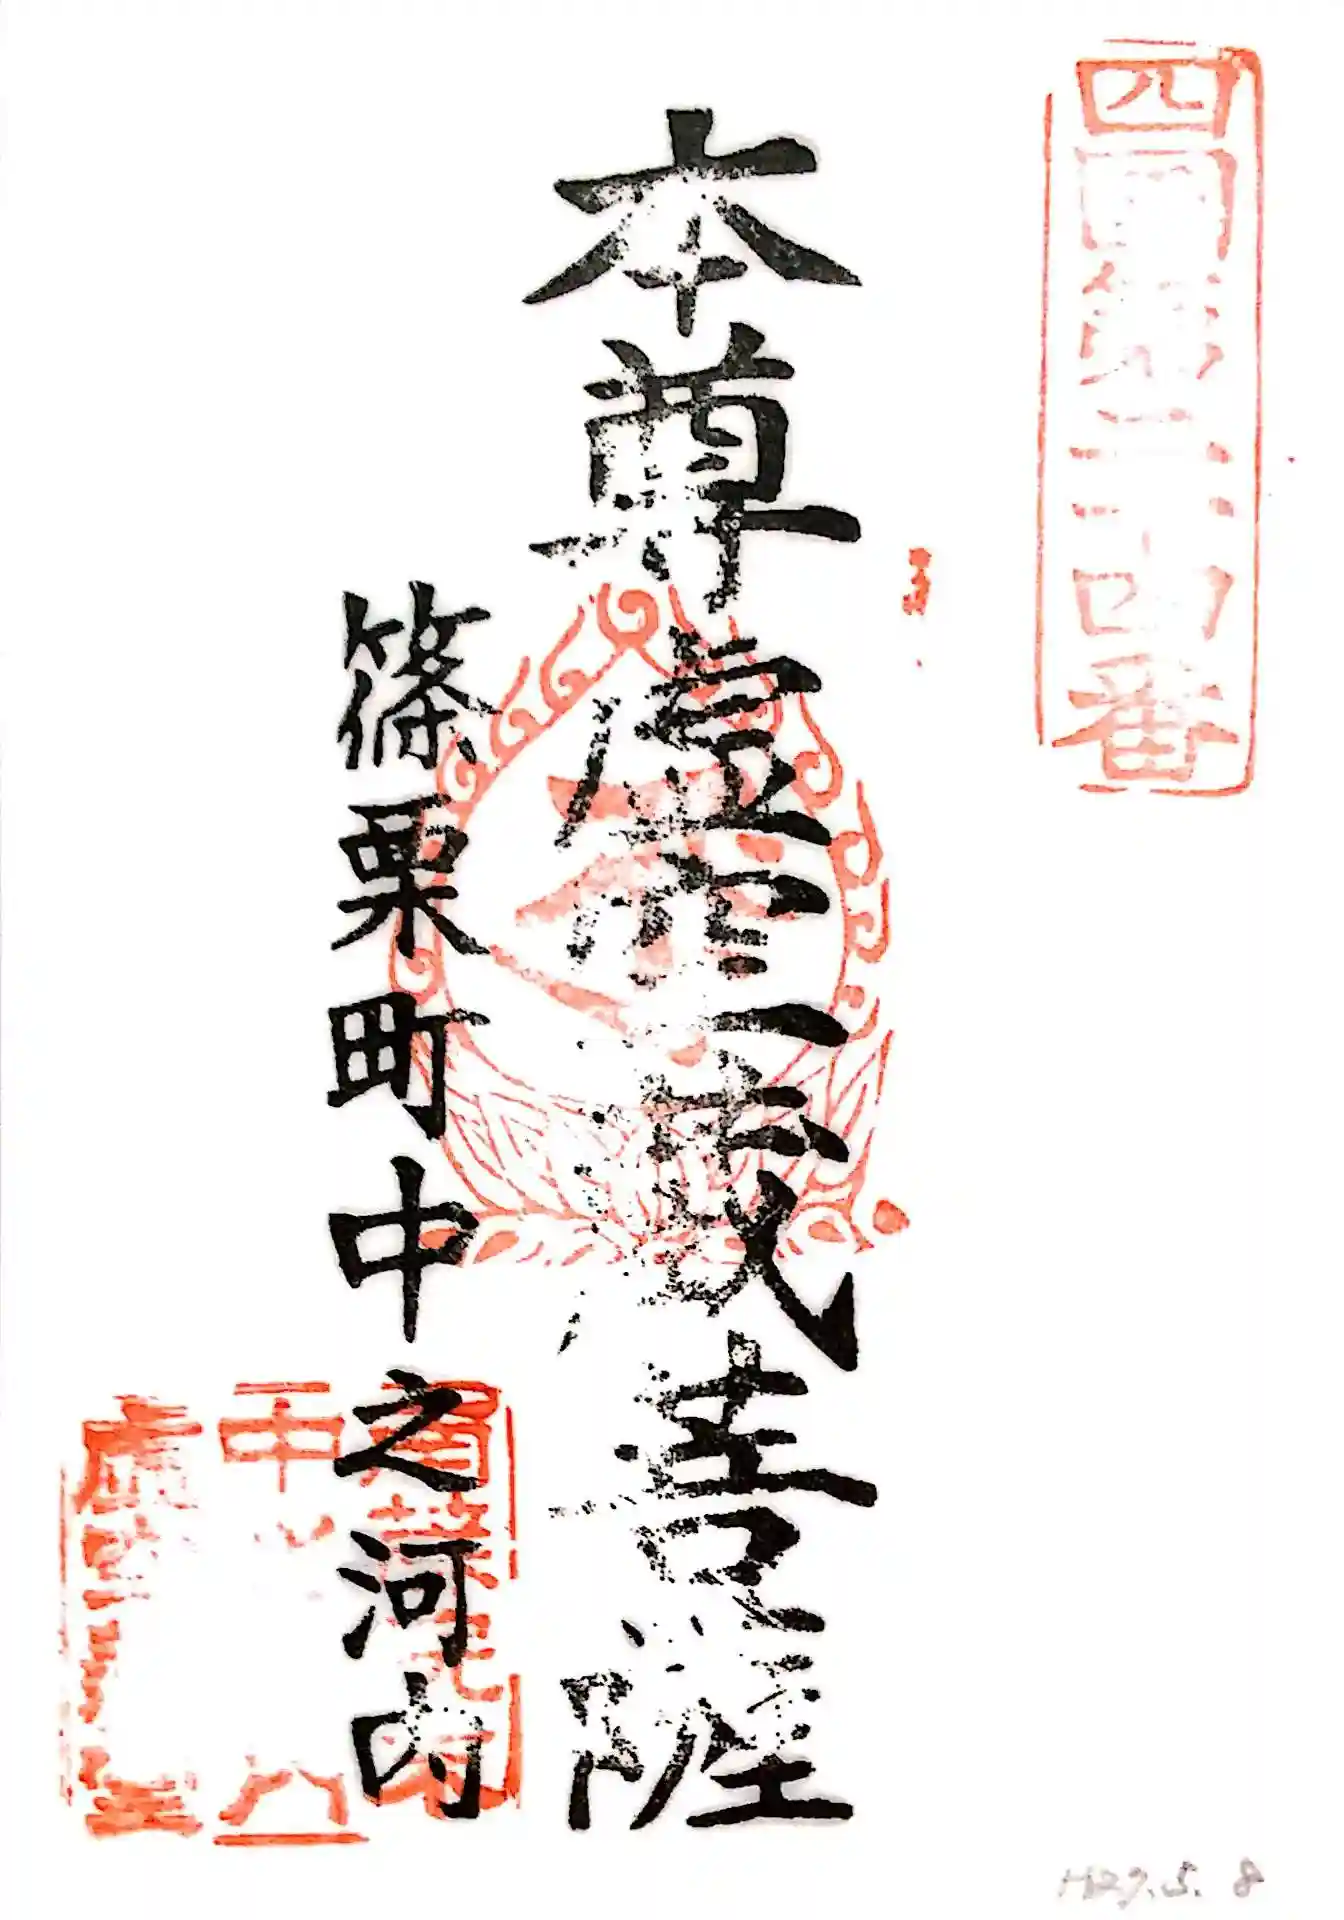 四国第二十四番
本尊虚空蔵菩薩
篠栗町中之河内
H29.5.8